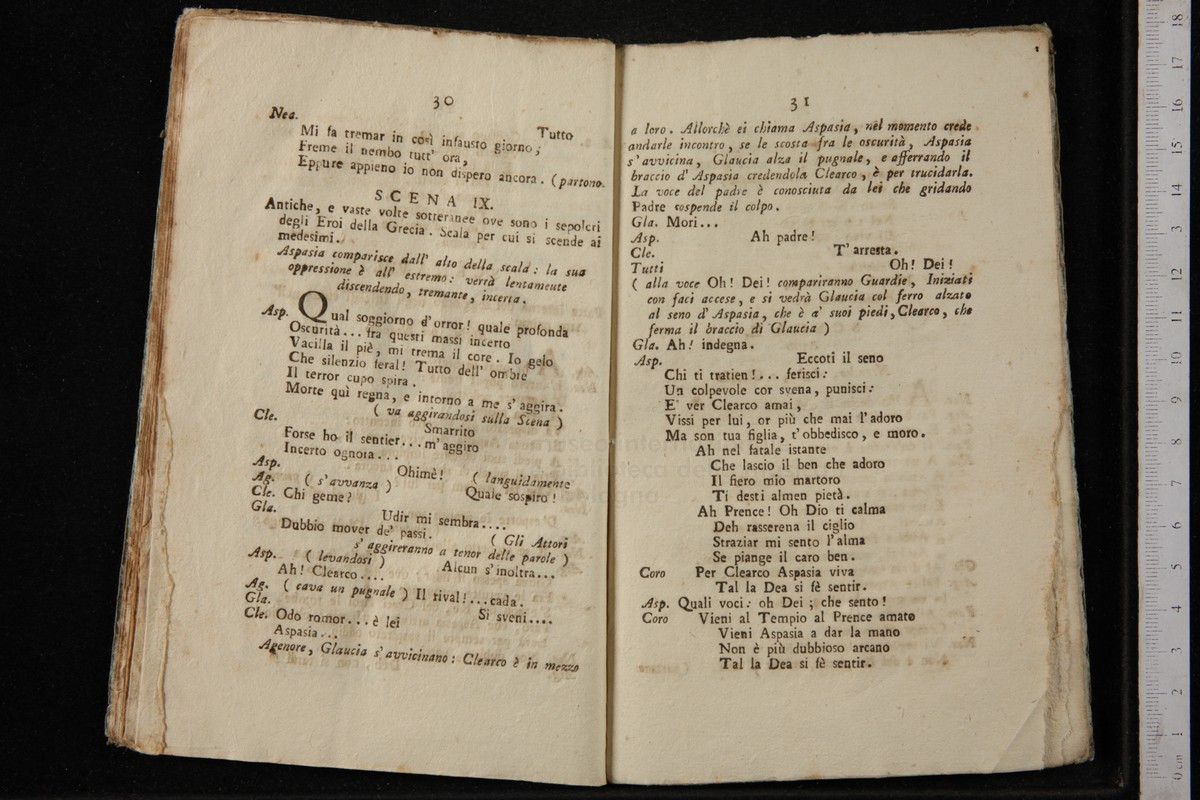 30
Nea.
Tutto
Mi fa tremar in così infausto giorno;
Freme il nembo tutt' ora,
Eppure appieno io non dispero ancora. (partono.
SCENA IX.
Antiche, e vaste volte sotterranee ove sono i sepolcri
degli Eroi della Grecia. Scala per cui si scende ai
medesimi.
Aspasia comparisce dall' alto della scala: la sua
oppressione è all' estremo: verrà lentamente
discendendo, tremante, incerta.
Asp. Qual soggiorno d'orror! quale profonda
Oscurità... fra questi massi incerto
Vacilla il piè, mi trema il core. Io gelo
Che silenzio feral! Tutto dell' ombre
Il terror cupo spira.
Morte quì regna, e intorno a me s'aggira.
( va aggirandosi sulla Scena )
Cle. Smarrito
Forse ho il sentier... m'aggiro
Incerto ognora...
Asp. Ohimè! ( languidamente
Ag. ( s'avvanza ) Quale sospiro!
Cle. Chi geme?
Gla. Udir mi sembra....
Dubbio mover de' passi. ( Gli Attori
s' aggireranno a tenor delle parole )
Asp. ( levandosi ) Alcun s'inoltra...
Ah! Clearco....
Ag. ( cava un pugnale ) Il rival!...cada.
Gla. Si sveni....
Cle. Odo romor...è lei
Aspasia...
Agenore, Glaucia s'avvicinano: Clearco è in mezzo
31
a loro. Allorchè ei chiama Aspasia, nel momento crede
andarle incontro, se le scosta fra le oscurità, Aspasia
s'avvicina, Glaucia alza il pugnale, e afferrando il
braccio d'Aspasia credendola Clearco, è per trucidarla.
La voce del padre è conosciuta da lei che gridando
Padre sospende il colpo.
Gla. Mori...
Asp. Ah padre!
Cle. T'arresta.
Tutti Oh! Dei!
( alla voce Oh! Dei! compariranno Guardie, Iniziati
con faci accese, e si vedrà Glaucia col ferro alzato
al seno d'Aspasia, che è a' suoi piedi, Clearco, che
ferma il braccio di Glaucia )
Gla. Ah! indegna.
Asp. Eccoti il seno
Chi ti tratien!... ferisci:
Un colpevole cor svena, punisci:
E' ver Clearco amai,
Vissi per lui, or più che mai l'adoro
Ma son tua figlia, t'obbedisco, e moro.
Ah nel fatale istante
Che lascio il ben che adoro
Il fiero mio martoro
Ti desti almen pietà.
Ah Prence! Oh Dio ti calma
Deh rasserena il ciglio
Straziar mi sento l'alma
Se piange il caro ben.
Coro Per Clearco Aspasia viva
Tal la Dea si fè sentir.
Asp. Quali voci: oh Dei; che sento!
Coro Vieni al Tempio al Prence amato
Vieni Aspasia a dar la mano
Non è più dubbioso arcano
Tal la Dea si fè sentir.